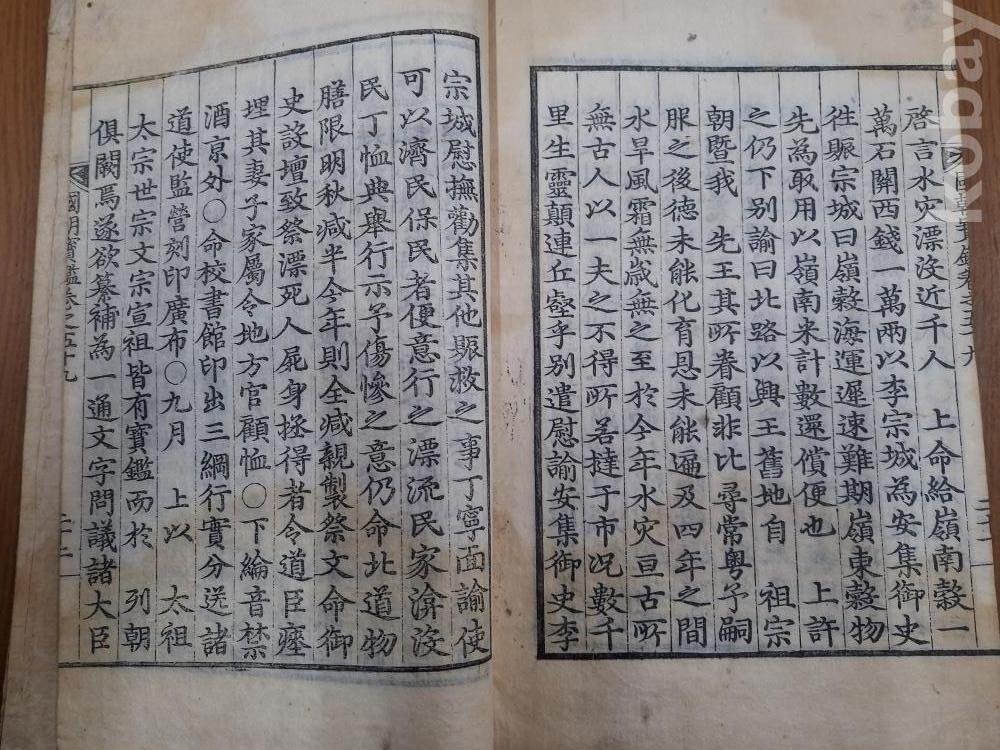 啓言水灾漂没近千人　上命給嶺南穀一
萬石關西錢一萬兩以李宗城為安集御史
徃賑宗城曰嶺穀海運遲速難期嶺東穀物
先為取用以嶺南米計數還償便也　上許
之仍下别諭曰北路以興王舊地自　祖宗
朝暨我　先王其所眷顧非比尋常粤予嗣
服之後德未能化育恩未能遍及四年之間
水旱風霜無歲無之至於今年水灾亘古所
無古人以一夫之不得所若撻于市况數千
里生靈顛連丘壑乎别遣慰諭安集御史李
宗城慰撫勸集其他賑救之事丁寧面諭使
可以濟民保民者便意行之漂流民家渰没
民丁恤典舉行示予傷慘之意仍命北道物
膳限明秋减半今年則全减親製祭文命御
史設壇致祭漂死人屍身拯得者令道臣瘞
埋其妻子家屬令地方官顧恤○下綸音禁
酒京外○命校書館印出三綱行實分送諸
道使監營刻印廣布○九月　上以　太祖
太宗世宗文宗宣祖皆有寳鑑而於　列朝
俱闕焉遂欲纂補為一通文字問議諸大臣
國朝寳鑑卷之五十九
二十二
kobay